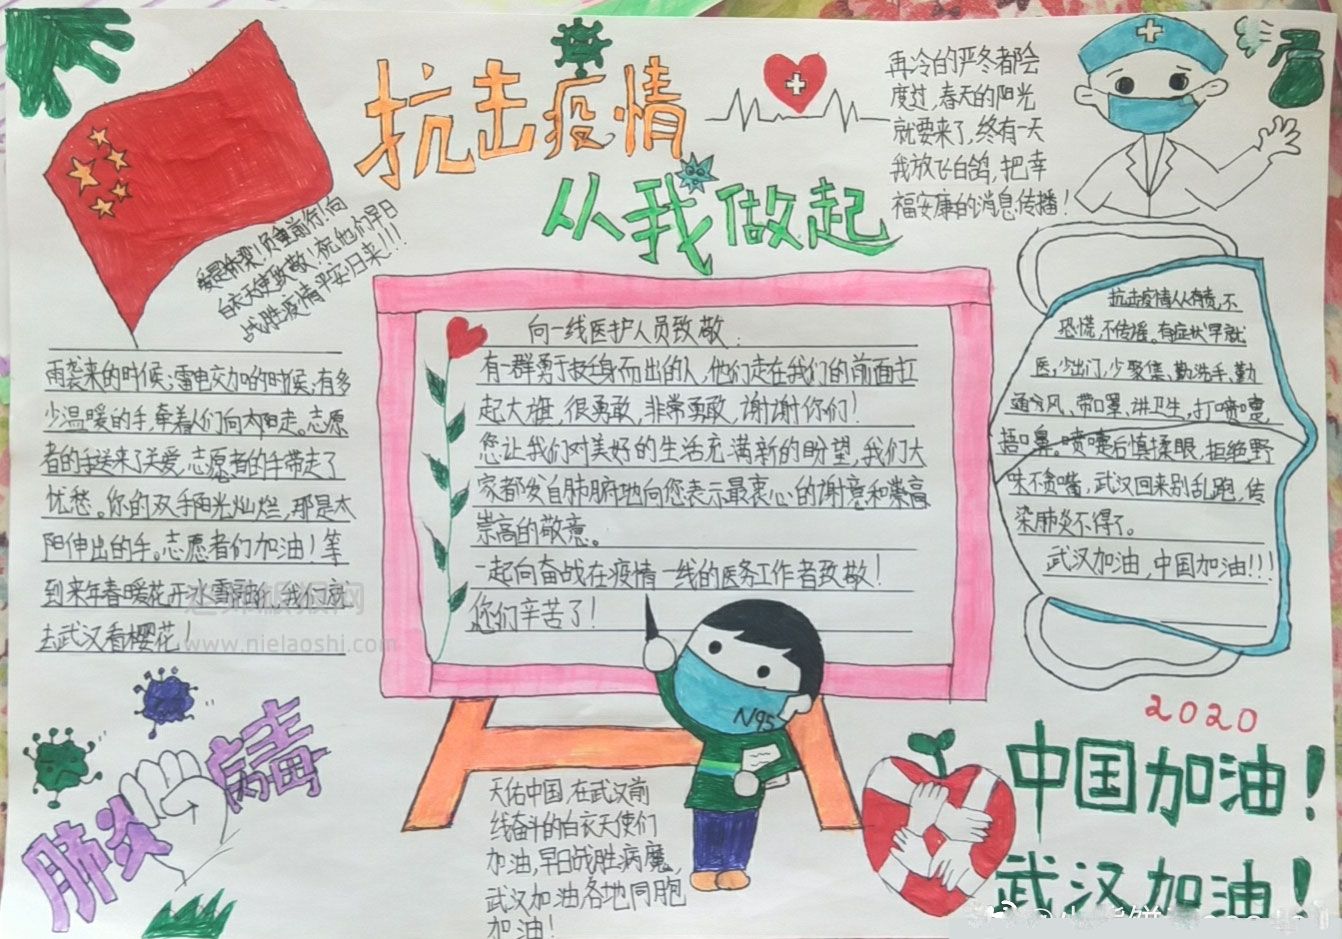 抗击疫情
从我做起
再冷的严冬都会
度过,春天的阳光
就要来了,终有一天
我放飞白鸽,把幸
福安康的消息传播!
爱是桥梁!负重前行!向
白衣天使致敬!祝他们早日
战胜疫情平安归来!!!
雨袭来的时候,雷电交加的时候,有多
少温暖的手,牵着人们向太阳走。志愿
者的手送来了关爱,志愿者的手带走了
忧愁。你的双手阳光灿烂,那是太
阳伸出的手。志愿者们加油!等
到来年春暖花开冰雪融化,我们就
去武汉看樱花!
www.nielaoshi.com
向一线医护人员致敬:
有一群勇于挺身而出的人,他们走在我们的前面扛
起大旗,很勇敢,非常勇敢,谢谢你们!
您让我们对美好的生活充满新的盼望,我们大
家都发自肺腑地向您表示最衷心的谢意和崇高
崇高的敬意。
一起向奋战在疫情一线的医务工作者致敬!
您们辛苦了!
抗击疫情人人有责,不
恐慌,不传谣。有症状早就
医,少出门,少聚集、勤洗手、勤
通风、带口罩、讲卫生,打喷嚏,
捂口鼻。喷嚏后慎揉眼,拒绝野
味不贪嘴,武汉回来别乱跑,传
染肺炎不得了。
武汉加油,中国加油!!!
N95
肺炎病毒
天佑中国,在武汉前
线奋斗的白衣天使们
加油,早日战胜病魔,
武汉加油各地同胞
加油!
2020
中国加油!
武汉加油!